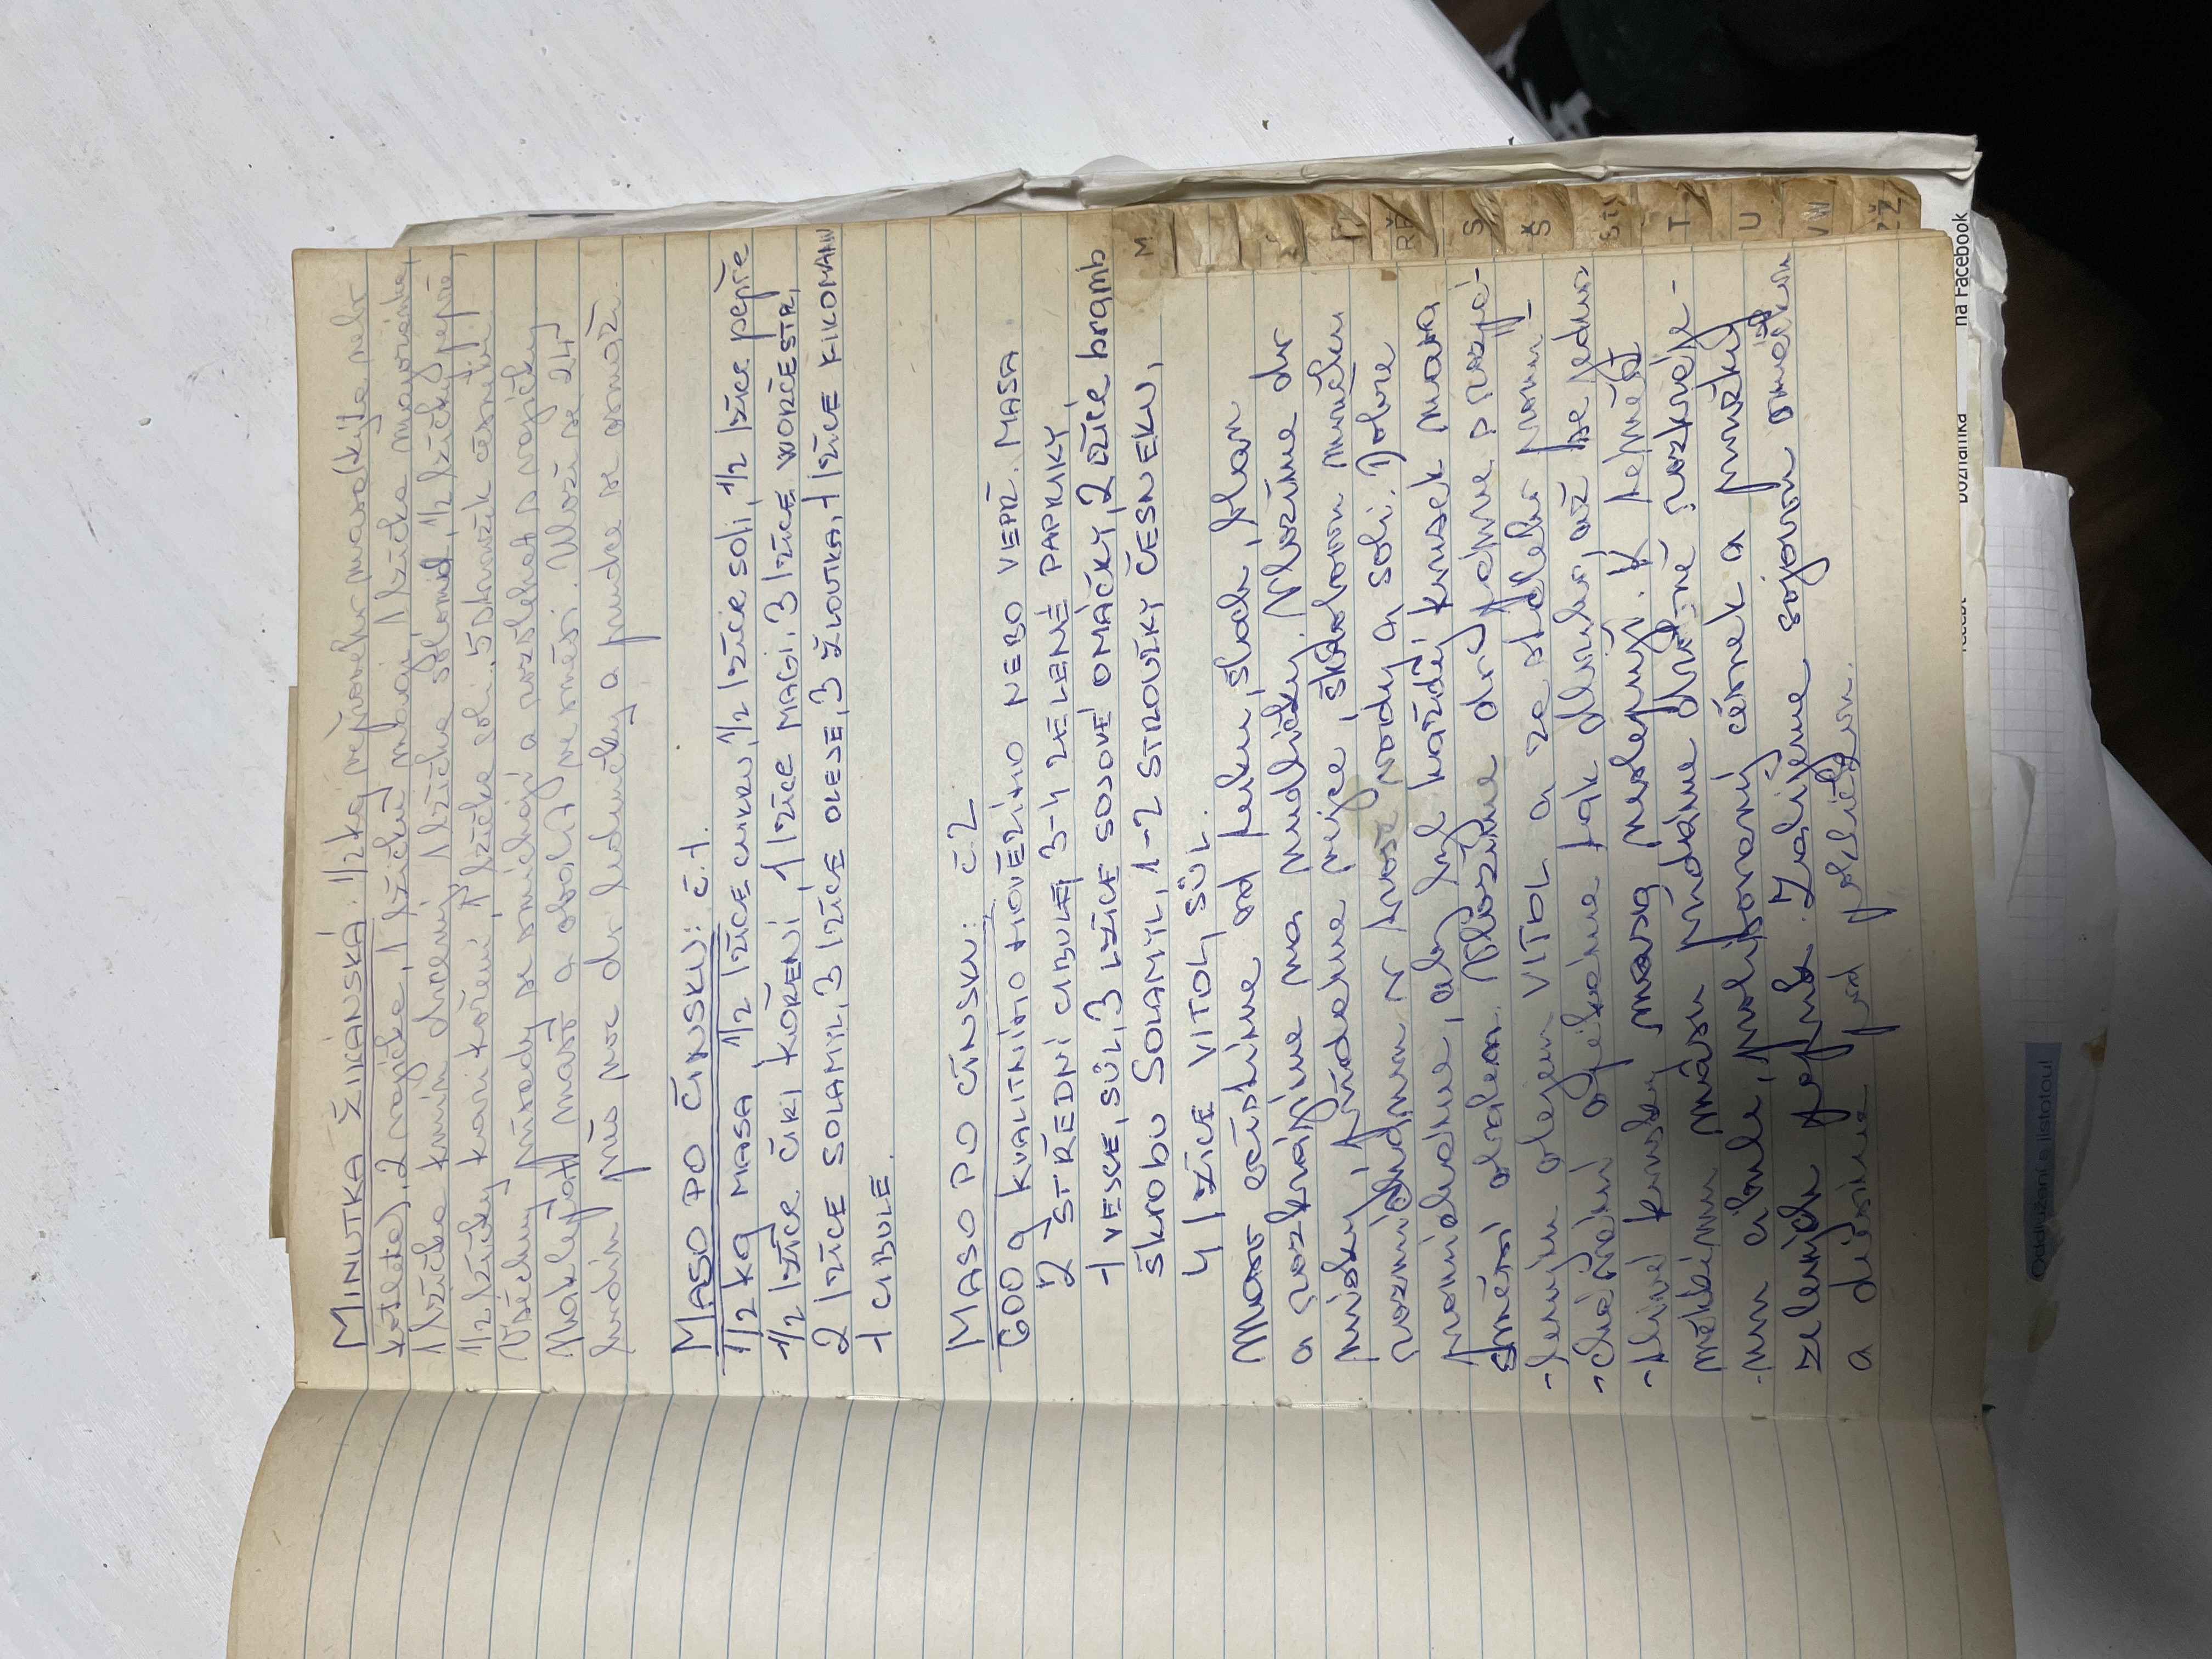 MINUTKA ŽIKÁNSKÁ: 1/2 kg vepřového masa (kýta nebo
kotleta), 2 vajíčka, 1 lžičku magi, 1 lžička majoránka,
1 lžička kmín drcený, 1 lžička solamid, 1/2 lžičky pepře,
1/2 lžičky kari koření, 1 lžička soli, 5 stroužk česneku.
Všechny přísady se smíchají a rozšlehat s vajíčky.
Naklepat maso a obalit ve směsi. Uloží se 24
hodin přes noc do ledničky a prudce se osmaží.
MASO PO ČÍNSKU: č.1.
1/2 kg MASA, 1/2 lžíCE CUKRU, 1/2 lžíce soli, 1/2 lžíce pepře
1/2 lžíce ČILI KOŘENÍ, 1 lžíce MAGI, 3 lžíCE WORČESTR,
2 lžíCE SOLAMYL, 3 lžíCE OLEJE, 3 ŽLOUTKA, 1 lžíCE KIKOMANU
1 CIBULE.
MASO PO CÍNSKU: č.2
600 g KVALITNÍHO HOVĚZÍHO NEBO VEPŘ. MASA
2 STŘEDNÍ CIBULE, 3-4 ZELENÉ PAPRIKY,
1 VEJCE, SŮL, 3 LŽÍCE SOJOVÉ OMÁČKY, 2 LŽÍCE bramb
škrobu SOLAMYL, 1-2 STROUŽKY ČESNEKU,
4 lŽÍCE VITOL, SŮL.
Maso očistíme od tuku, šlach, blan
a rozkrájíme na nudličky. Vložíme do
misky, přidáme vejce, škrobovou moučku
rozmíchanou v troše vody a soli. Dobře
promícháme, aby byl každý kousek masa
směsí obalen. Vložíme do pánve s rozpá-
-leným olejem VITOL a za stálého promí-
-chávání opékáme tak dlouho, až se jedno-
-tlivé kousky masa neslepují. K téměř
měkkému masu přidáme drobně rozkráje-
-nou cibuli, prolisovaný česnek a proužky
zelených paprik. Zalijeme sojovou omáčkou
a dusíme pod pokličkou.
M
RŘ
S
Š
ŠŤ
T
U
VW
ZŽ
recept Poznámka na Facebook
Oddlužení s jistotou!